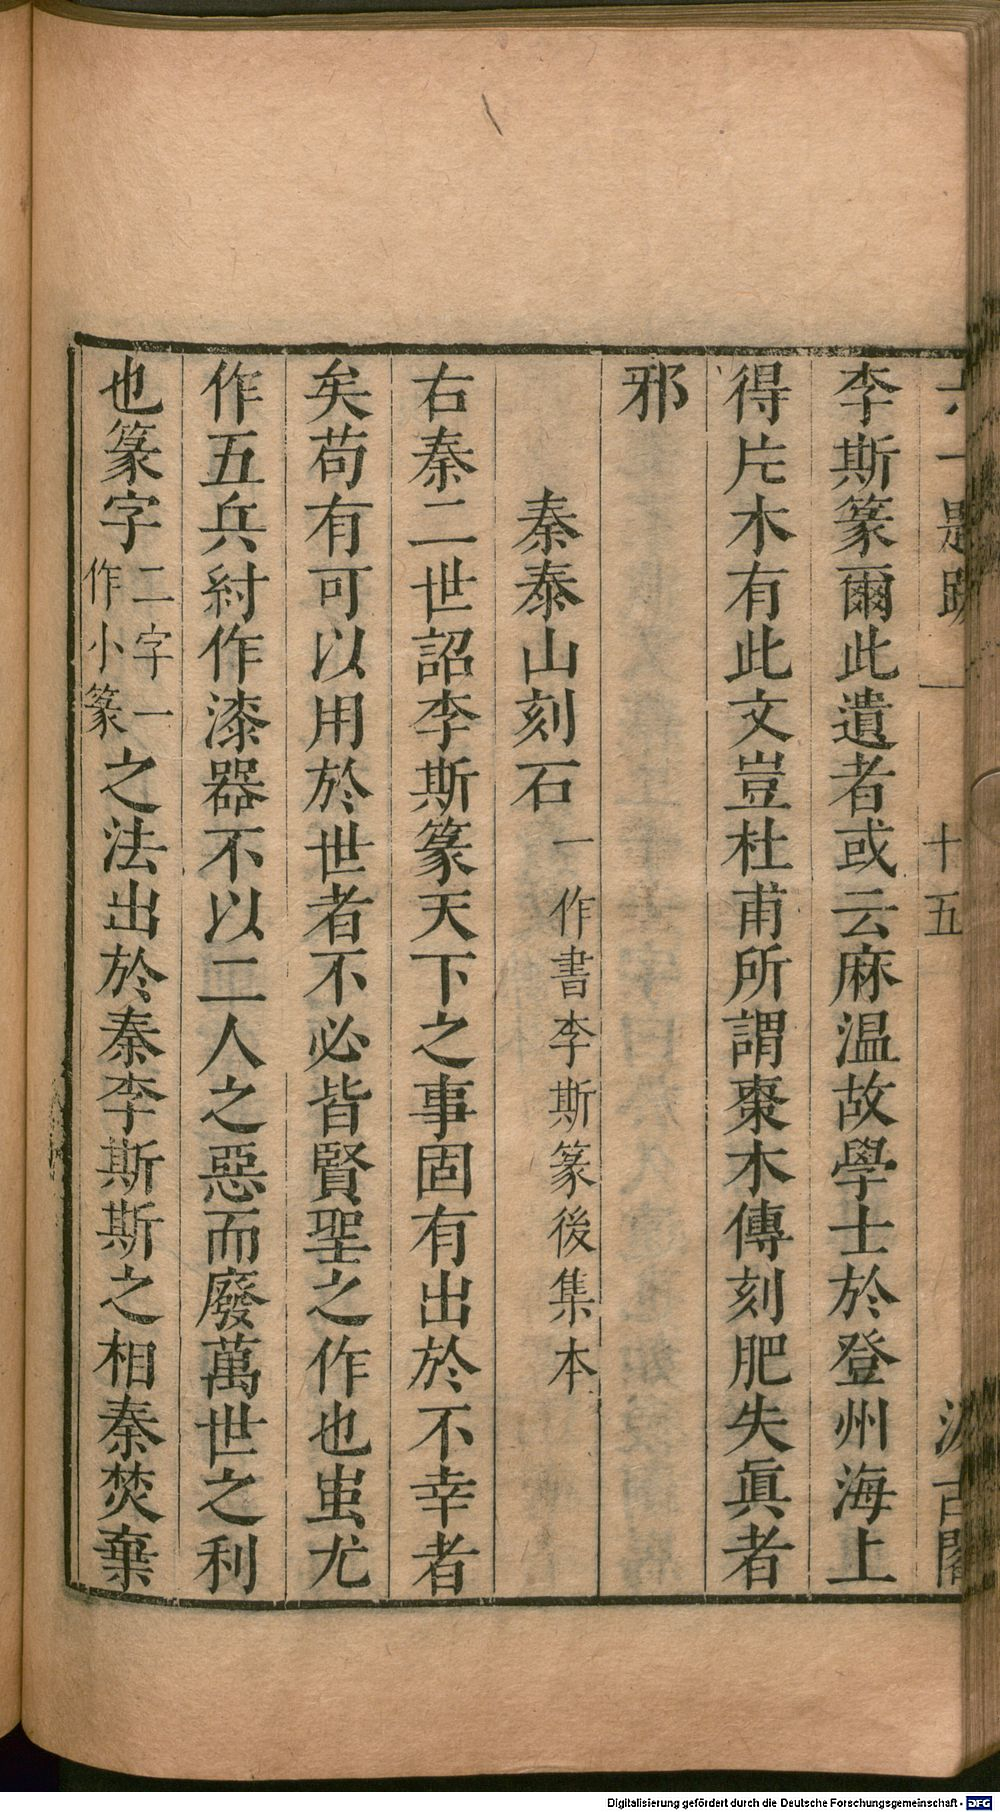 六一題跋
一
十五
汲古閣
李斯篆爾此遺者或云麻温故學士於登州海上
得片木有此文豈杜甫所謂棗木傳刻肥失眞者
邪
秦泰山刻石 一作書李斯篆後集本
右秦二世詔李斯篆天下之事固有出於不幸者
矣苟有可以用於世者不必皆賢聖之作也蚩尤
作五兵紂作漆器不以二人之惡而廢萬世之利
也篆字二字一作小篆之法出於秦李斯斯之相秦焚棄
Digitalisierung gefördert durch die Deutsche Forschungsgemeinschaft - DFG